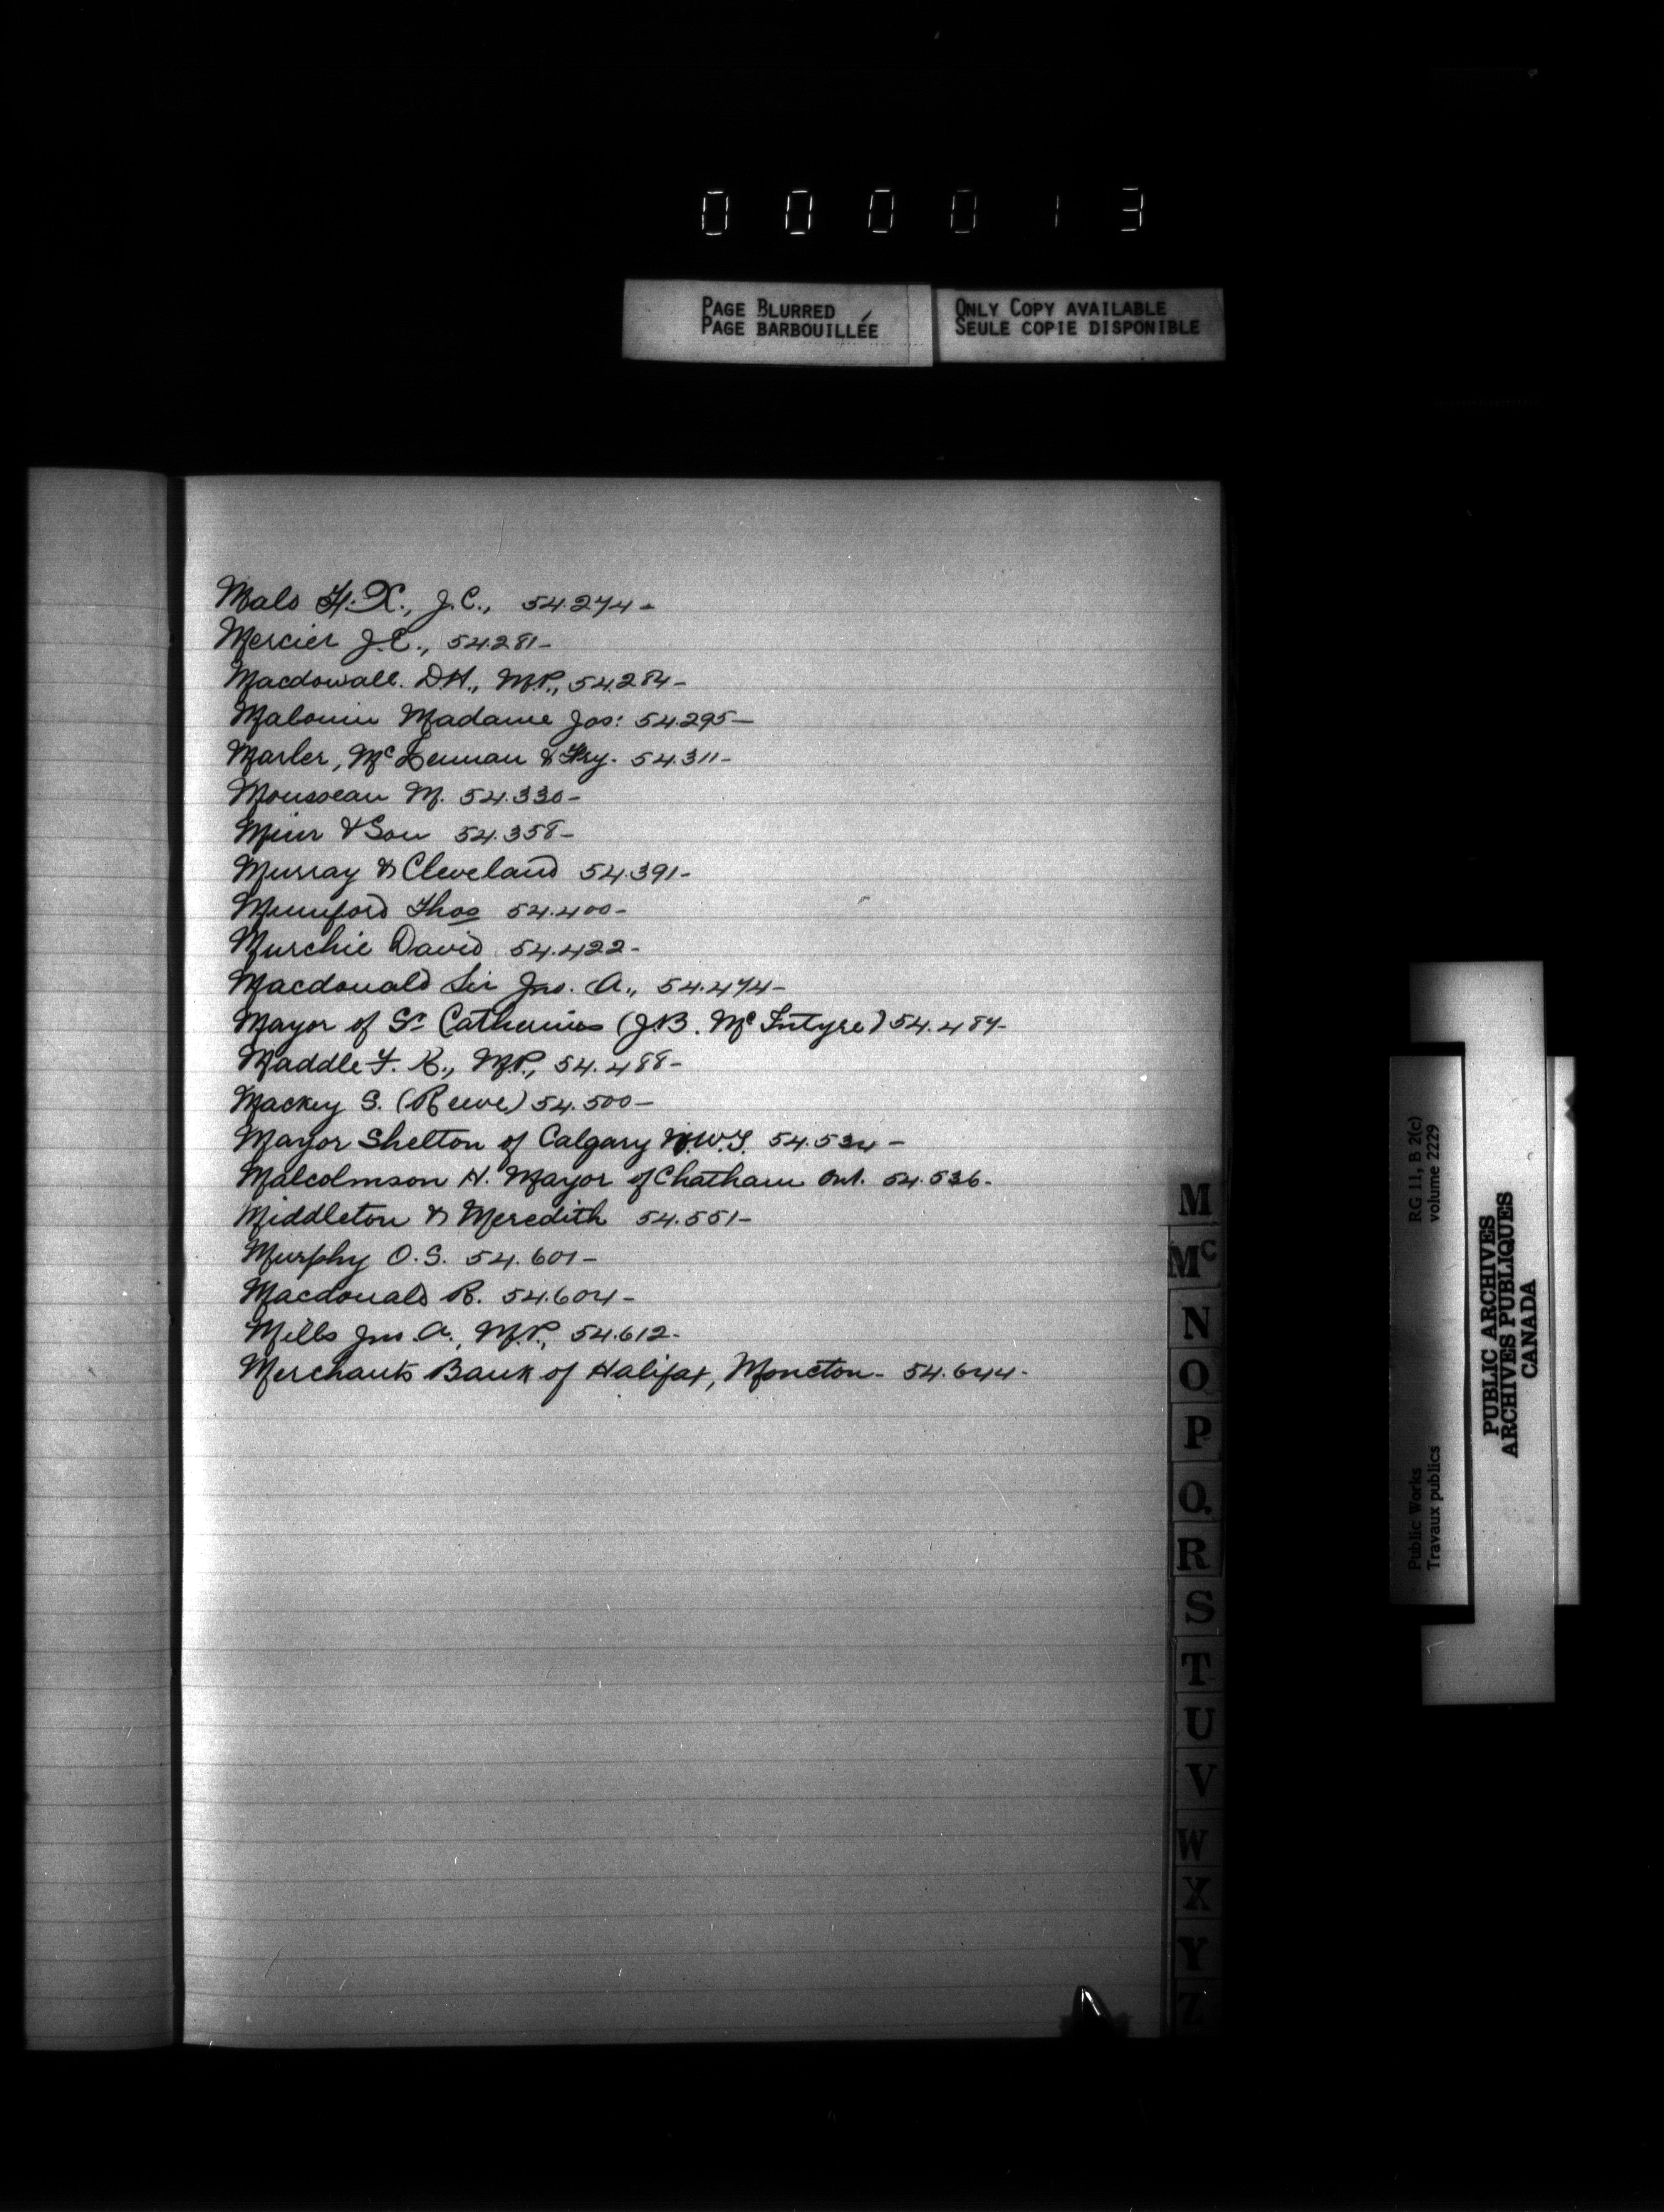 0 0 0 0 1 3
PAGE BLURRED
PAGE BARBOUILLÉE
ONLY COPY AVAILABLE
SEULE COPIE DISPONIBLE
Malo F. X., J.C., 54.274-
Mercier J.E., 54.281-
Macdowall. D.H., M.P., 54.284-
Malouin Madame Jos: 54.295-
Marler, McLennan & Fry. 54.311-
Mousseau M. 54.330-
Muir & Son 54.358-
Murray & Cleveland 54.391-
Mumford Thos 54.400-
Murchie David 54.422-
Macdonald Sir Jno. A., 54.474-
Mayor of St Catherines (J.B. McIntyre) 54.487-
Maddle F. K., M.P., 54.488-
Mackey S. (Reeve) 54.500-
Mayor Shelton of Calgary N.W.T. 54.534-
Malcolmson H. Mayor of Chatham Ont. 54.536-
Middleton & Meredith 54.551-
Murphy O.S. 54.601-
Macdonald R. 54.604-
Mills Jno. A., M.P., 54.612-
Merchants Bank of Halifax, Moncton- 54.644-
M
Mc
N
O
P
Q
R
S
T
U
V
W
X
Y
Z
Public Works
Travaux publics
RG 11, B 2(c)
volume 2229
PUBLIC ARCHIVES
ARCHIVES PUBLIQUES
CANADA